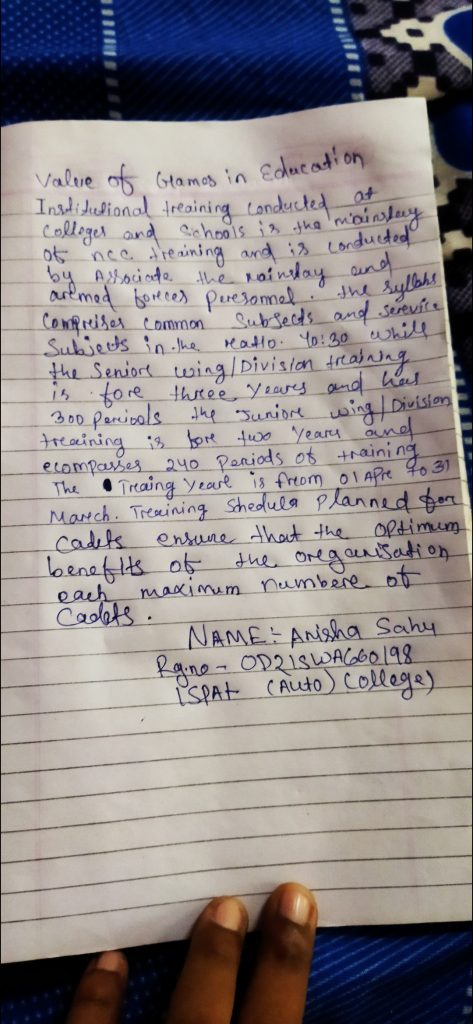 Value of Games in Education
Institutional treaining conducted at
colleges and Schools is the mainstay
of ncc treaining and is conducted
by Associate the mainstay and
aremed forces Peresonnel. the syllabs
Compreises common Subjects and serevice
Subjects in the reatio. 70:30 while
the Seniore wing/Division treaining
is fore three Yeares and has
300 Periods the Juniore wing/Division
treaining is fore two Years and
ecompasses 240 Periods of training
The Treaing Yeare is from 01 Apre to 31
March. Treaining Shedula Planned for
Cadets ensure that the optimum
benefits of the oreganisation
each maximum numbere of
Cadets.
NAME:- Anisha Sahu
Rg.no - OD21SWA660198
ISPAt (Auto) College)